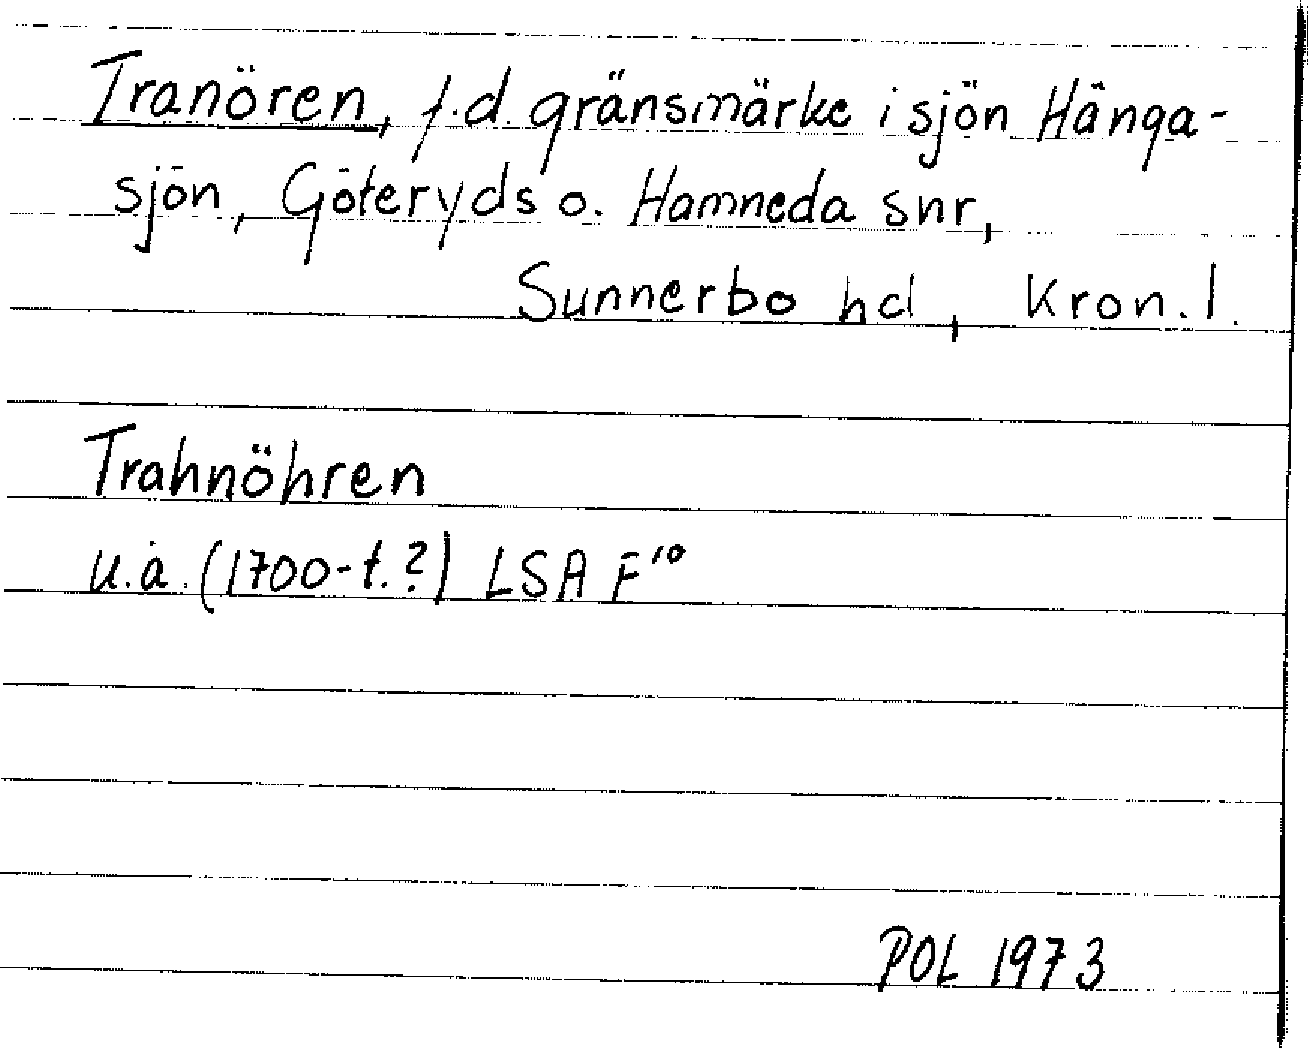 Tranören, f.d. gränsmärke i sjön Hänga-
sjön, Göteryds o. Hamneda snr,
Sunnerbo hd, Kron. l.
Trahnöhren
u.å. (1700-t.?) LSA F¹⁰
POL 1973